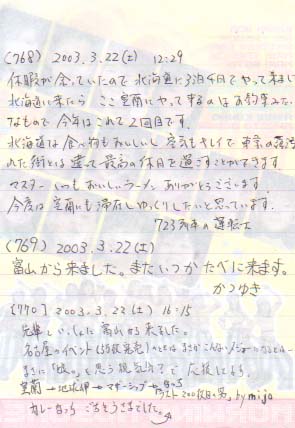 (768) 2003.3.22(土) 12:29
休暇が余っていたので北海道に3泊4日でやって来ました
北海道に来たら ここ室蘭にやって来るのはお約束みたい
なもので今年はこれで2回目です。
北海道は食べ物もおいしいし空気もキレイで東京の腐
れた街とは違って最高の休日を過ごすことができます
マスター いつもおいしいラーメン ありがとうございます。
今度は室蘭にも滞在しゆっくりしたいと思っています。
723列車の運転士
(769) 2003.3.22(土)
富山から来ました。またいつかたべに来ます。
かつゆき
(770) 2003.3.22(土) 16:15
先輩といっしょに富山から来ました。
名古屋のイベント
まさに「娘。」を思う
室蘭→地球岬→マザーシップ→
by mija
カレーラーメン ごちそうさまでした。